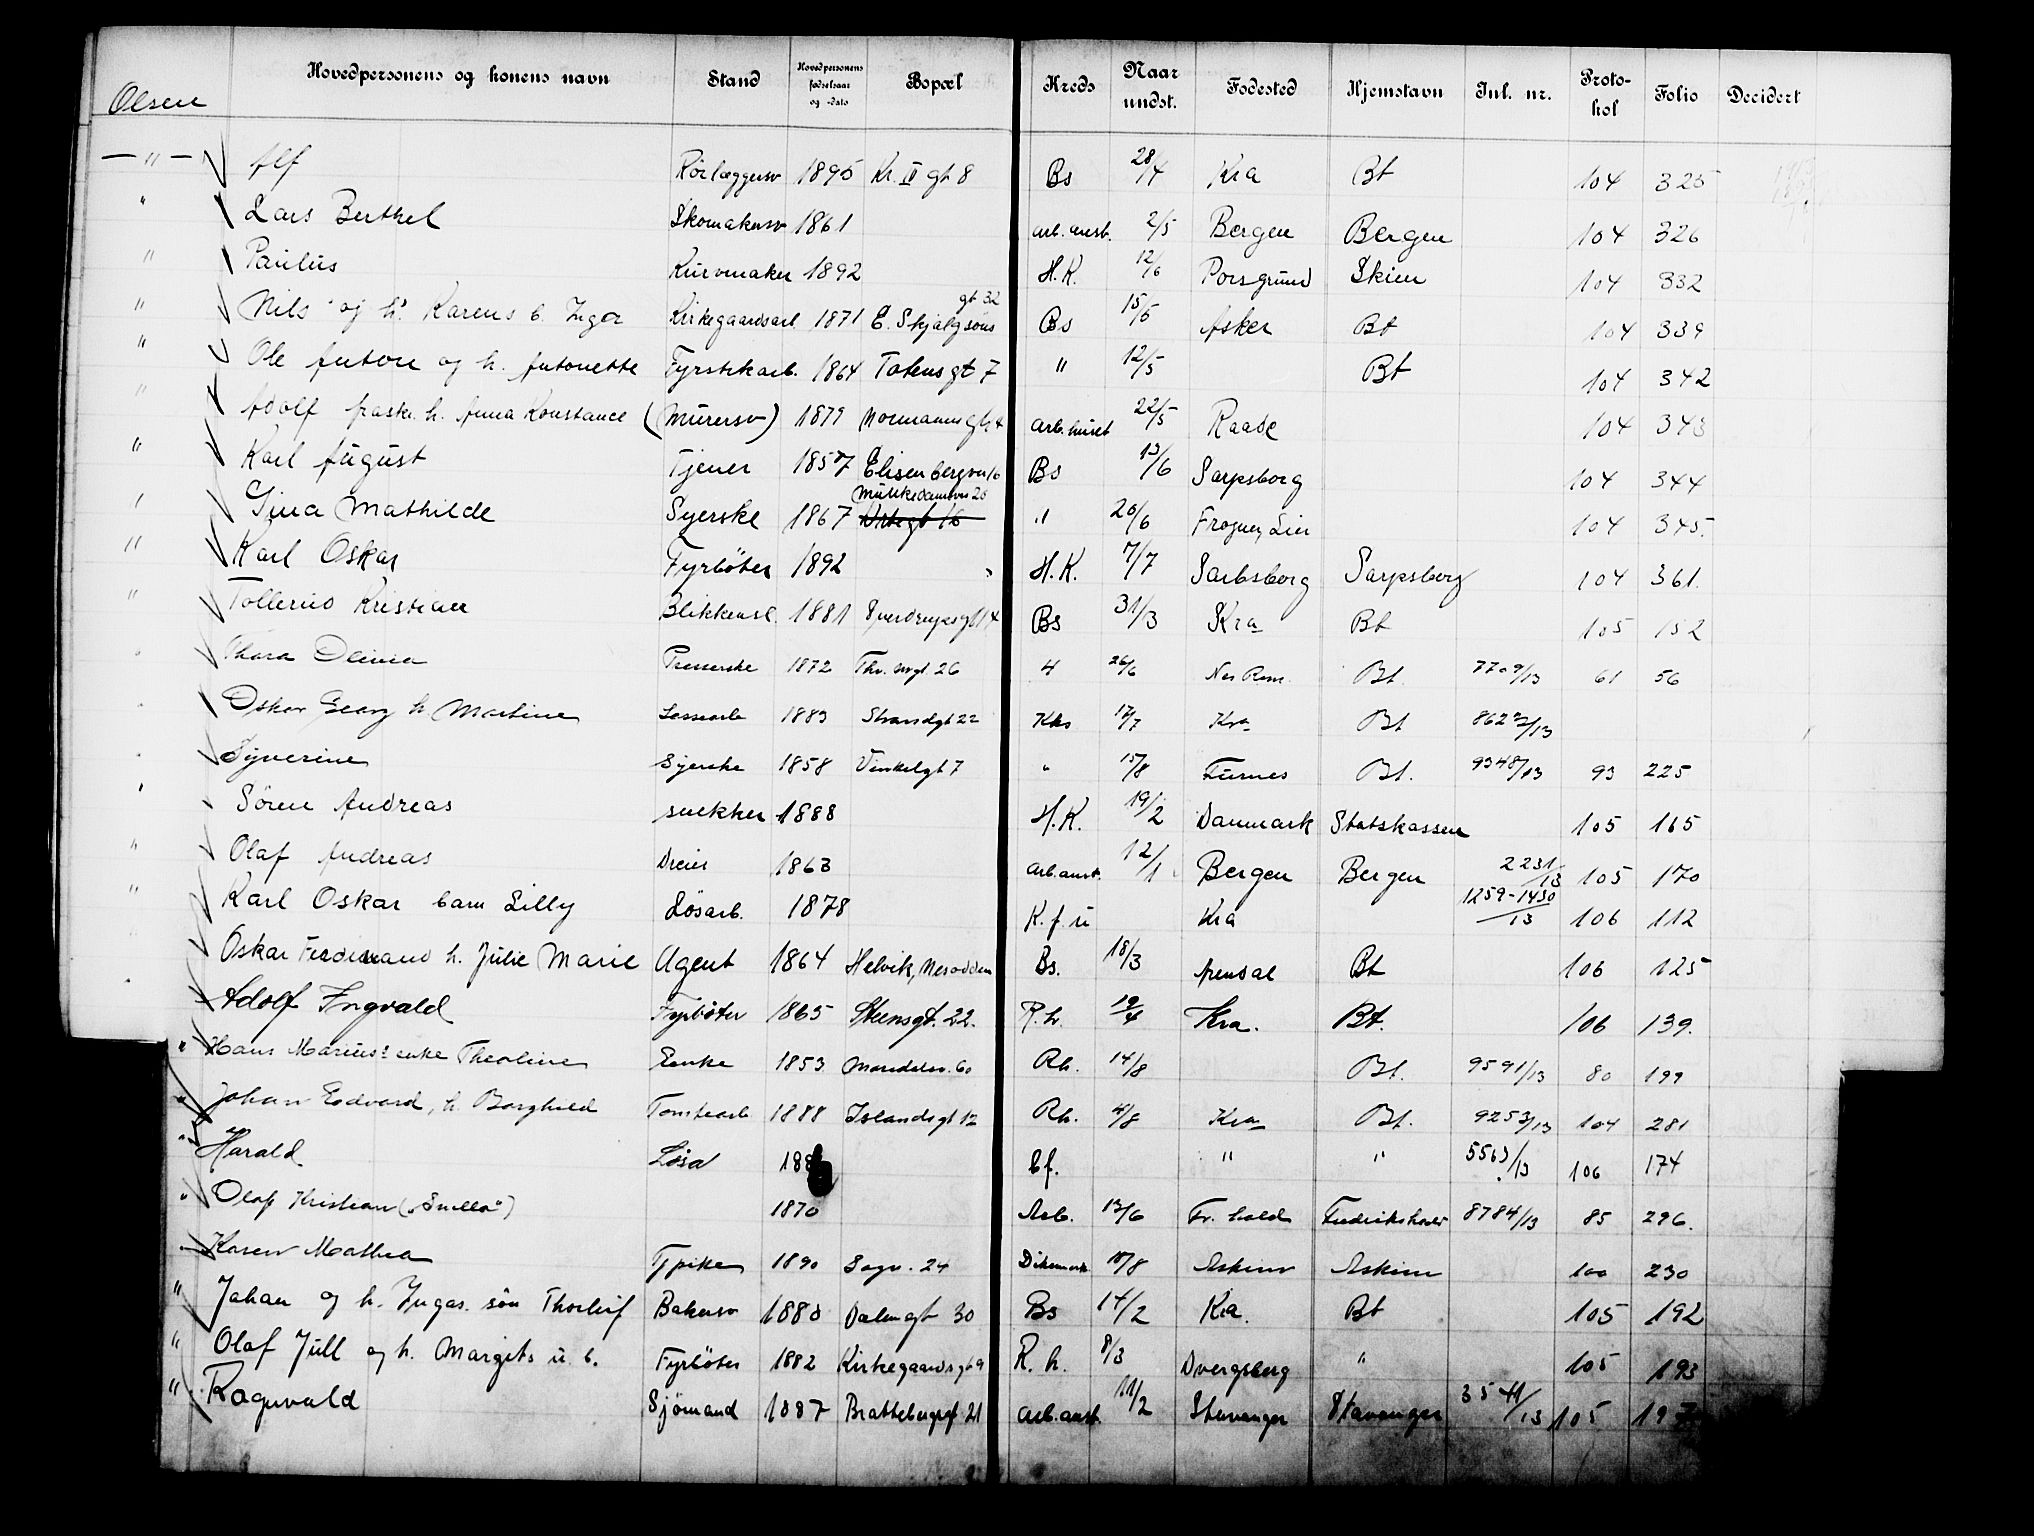 Olsen
Hovedpersonens og konens navn | Stand | Hovedpersonens fødselsaar og -dato | Bopæl | Kreds | Naar undst. | Fodested | Hjemstavn | Inl. nr. | Protokol | Folio | Decidert
— " — Alf | Rörlæggersv | 1895 | Kr. II gt 8 | Bs | 28/4 | Kra | Bt | 104 | 325
" Lars Berthel | Skomakersv | 1861 | arb. anst. | 2/5 | Bergen | Bergen | 104 | 326
" Paulus | Kurvmaker | 1892 | H.K. | 12/6 | Porsgrund | Skien | 104 | 332
" Nils og h. Karens b. Inger | Kirkegaardsarb | 1871 | E. Skjalgsöns gt 32 | Bs | 15/5 | Asker | Bt | 104 | 339
" Ole Anton og h. Antonette | Fyrstikarb. | 1864 | Totens gt 7 | " | 12/5 | Bt | 104 | 342
" Adolf frask. h. Anna Konstance | (Murersv) | 1879 | Normannsgt. 4 | arb.huset | 22/5 | Raade | 104 | 343
" Karl August | Tjener | 1857 | Elisenbergvn 10 | Bs | 13/6 | Sarpsborg | 104 | 344
" Gina Mathilde | Syerske | 1867 | Munkedamsvn 25 Urtegt 16 | " | 20/6 | Frogner, Lier | 104 | 345.
" Karl Oskar | Fyrböter | 1892 | H.K. | 7/7 | Sarbsborg | Sarpsborg | 104 | 361.
" Tollerud Kristian | Blikkensl. | 1881 | Sverdrupsgt 14 | Bs | 31/3 | Kra | Bt | 105 | 152
" Thora Olivia | Presserske | 1872 | Thv. Mgt. 26 | 4 | 26/6 | Nes Rom. | Bt. | 7709/13 | 61 | 56
Oskar Georg h Martine | Lossearb | 1883 | Strandgt 22 | Kks | 17/7 | Kra | Bt | 8622/13
" Syverine | Syerske | 1858 | Vinkelgt 7 | " | 15/8 | Furnes | Bt. | 9348/13 | 93 | 225
" Sören Andreas | snekker | 1888 | H.K. | 19/2 | Danmark | Statskassen | 105 | 165
" Olaf Andreas | Dreier | 1863 | arb.anst. | 12/1 | Bergen | Bergen | 2231/13 | 105 | 170
" Karl Oskar barn Lilly | Løsarb. | 1878 | K.f.u | Kra | 1259-1430/13 | 106 | 112
Oskar Ferdinand h. Julie Marie | Agent | 1864 | Helvik, Nesodden | Bs. | 18/3 | Arendal | Bt | 106 | 125
" Adolf Ingvald | Fyrbøter | 1865 | Steensgt. 22. | R.h. | 19/4 | Kra. | Bt. | 106 | 139.
" Hans Marius' enke Theoline | Enke | 1853 | Maridalsv. 60 | Rh. | 14/8 | Bt. | 9591/13 | 80 | 199
" Johan Edvard, h. Borghild | Tomtearb | 1888 | Islandsgt 12 | Rh. | 4/8 | Kra | Bt. | 9253/13 | 104 | 281
" Harald. | Løsa | 188 | Cf. | " | " | 5563/13 | 106 | 174
" Olaf Kristian („Snella") | 1870 | Arb. | 13/6 | Fr. hald | Fredrikshald | 8784/13 | 85 | 296.
" Karen Mathea | Tjpike | 1890 | Sagv. 24 | Dikemark | 18/8 | Askim | Askim | 100 | 230
" Johan og h. Ingas. sön Thorleif | Bakersv | 1880 | Dalengt 30 | Bs | 14/2 | Kra. | Bt | 105 | 192
" Olaf Jull og h. Margits u. b. | Fyrböter | 1882 | Kirkegaardsgt 9 | R.h. | 8/3 | Dvergsberg | " | 105 | 193
" Ragnvald | Sjömand | 1887 | Brattebergsgt 21 | arb.anst. | 11/2 | Stavanger | Stavanger | 3541/13 | 105 | 197